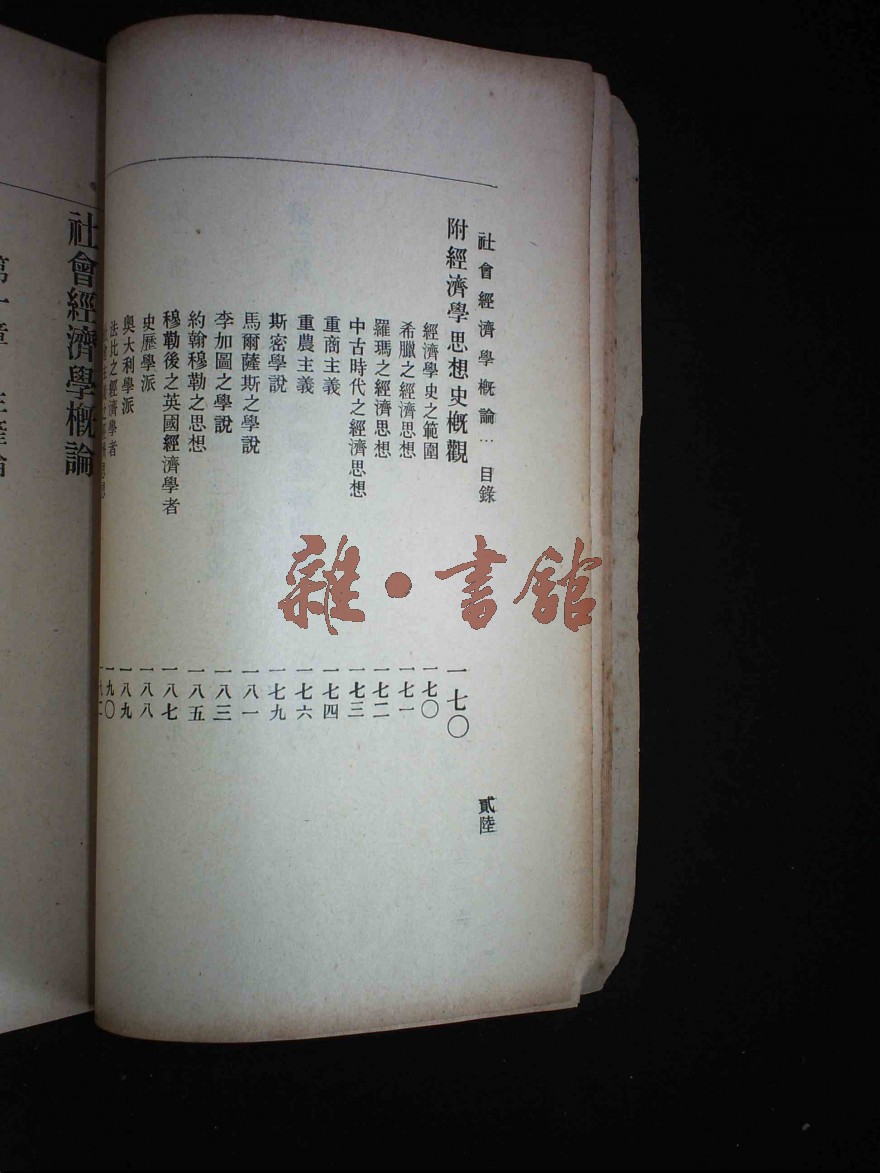 社會經濟學概論⋯目錄 貳陸
附經濟學思想史概觀 一七〇
經濟學史之範圍 一七〇
希臘之經濟思想 一七一
羅瑪之經濟思想 一七二
中古時代之經濟思想 一七三
重商主義 一七四
重農主義 一七六
斯密學說 一七九
馬爾薩斯之學說 一八一
李加圖之學說 一八三
約翰穆勒之思想 一八五
穆勒後之英國經濟學者 一八七
史歷學派 一八八
奧大利學派 一八九
法比之經濟學者 一九〇
社會經濟學概論
雜・書館